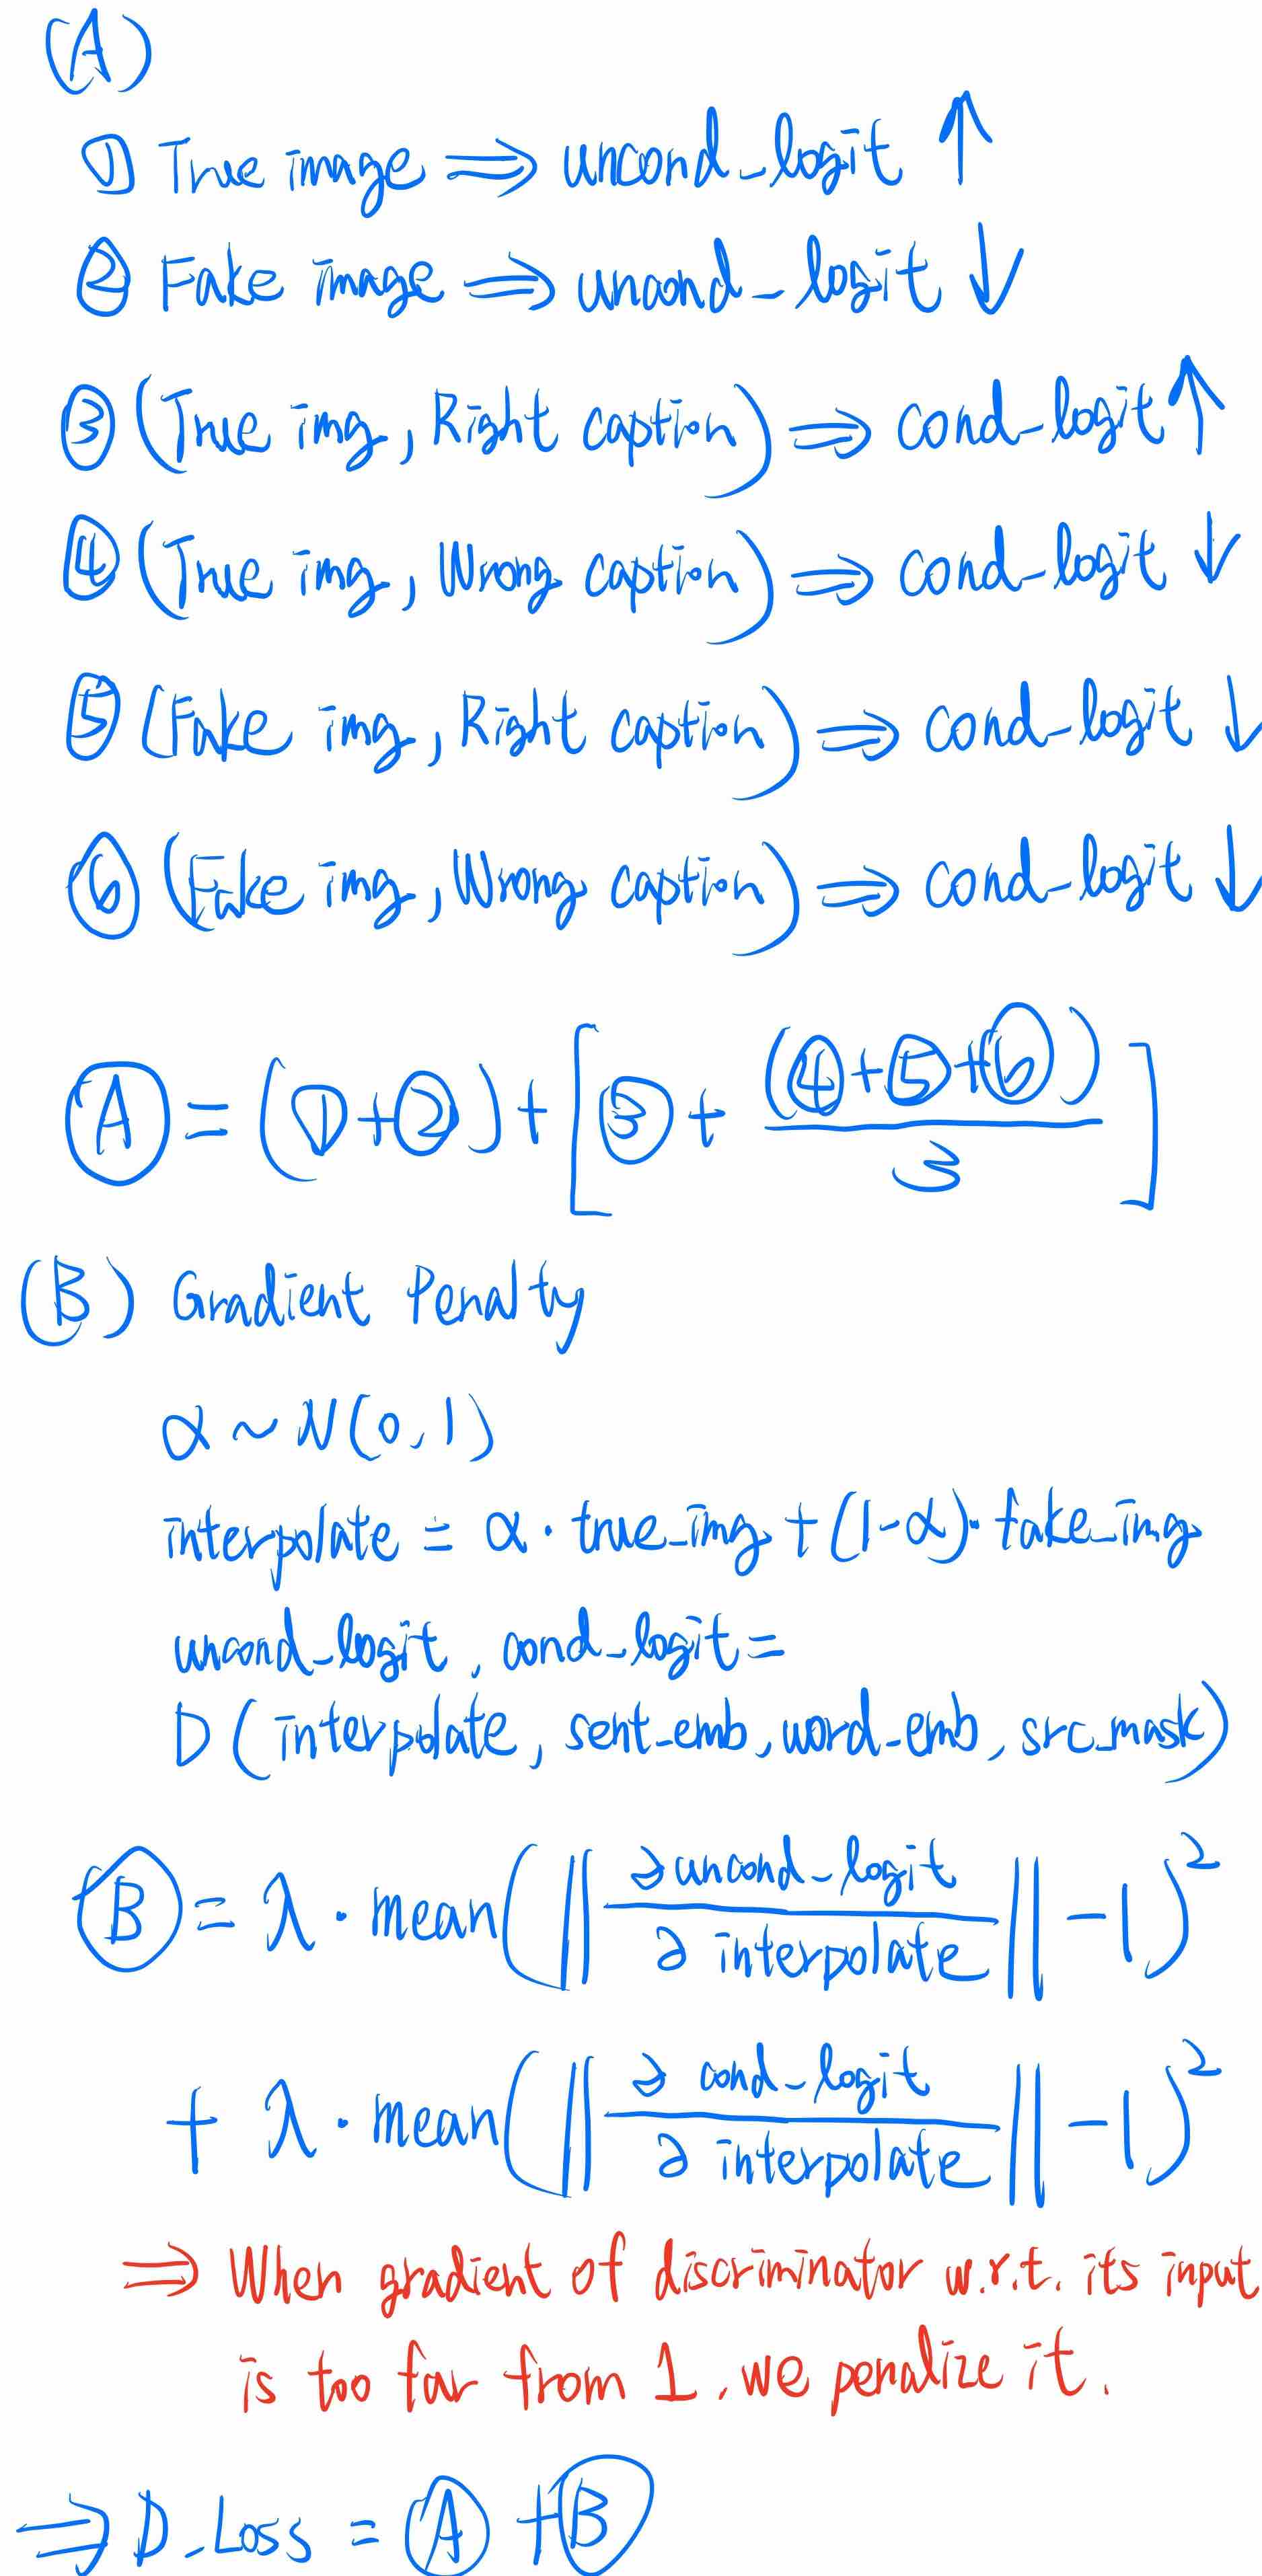 (A)
① True image ⇒ uncond_logit ↑
② Fake image ⇒ uncond_logit ↓
③ (True img, Right caption) ⇒ cond_logit ↑
④ (True img, Wrong caption) ⇒ cond_logit ↓
⑤ (Fake img, Right caption) ⇒ cond_logit ↓
⑥ (Fake img, Wrong caption) ⇒ cond_logit ↓
Ⓐ = (① + ②) + [③ + (④ + ⑤ + ⑥) / 3]
(B) Gradient Penalty
α ~ N(0,1)
interpolate = α · true_img + (1-α) · fake_img
uncond_logit, cond_logit =
D (interpolate, sent_emb, word_emb, src_mask)
Ⓑ = λ · mean(‖∂ uncond_logit / ∂ interpolate‖ - 1)²
+ λ · mean(‖∂ cond_logit / ∂ interpolate‖ - 1)²
⇒ When gradient of discriminator w.r.t. its input
is too far from 1, we penalize it.
⇒ D_Loss = Ⓐ + Ⓑ